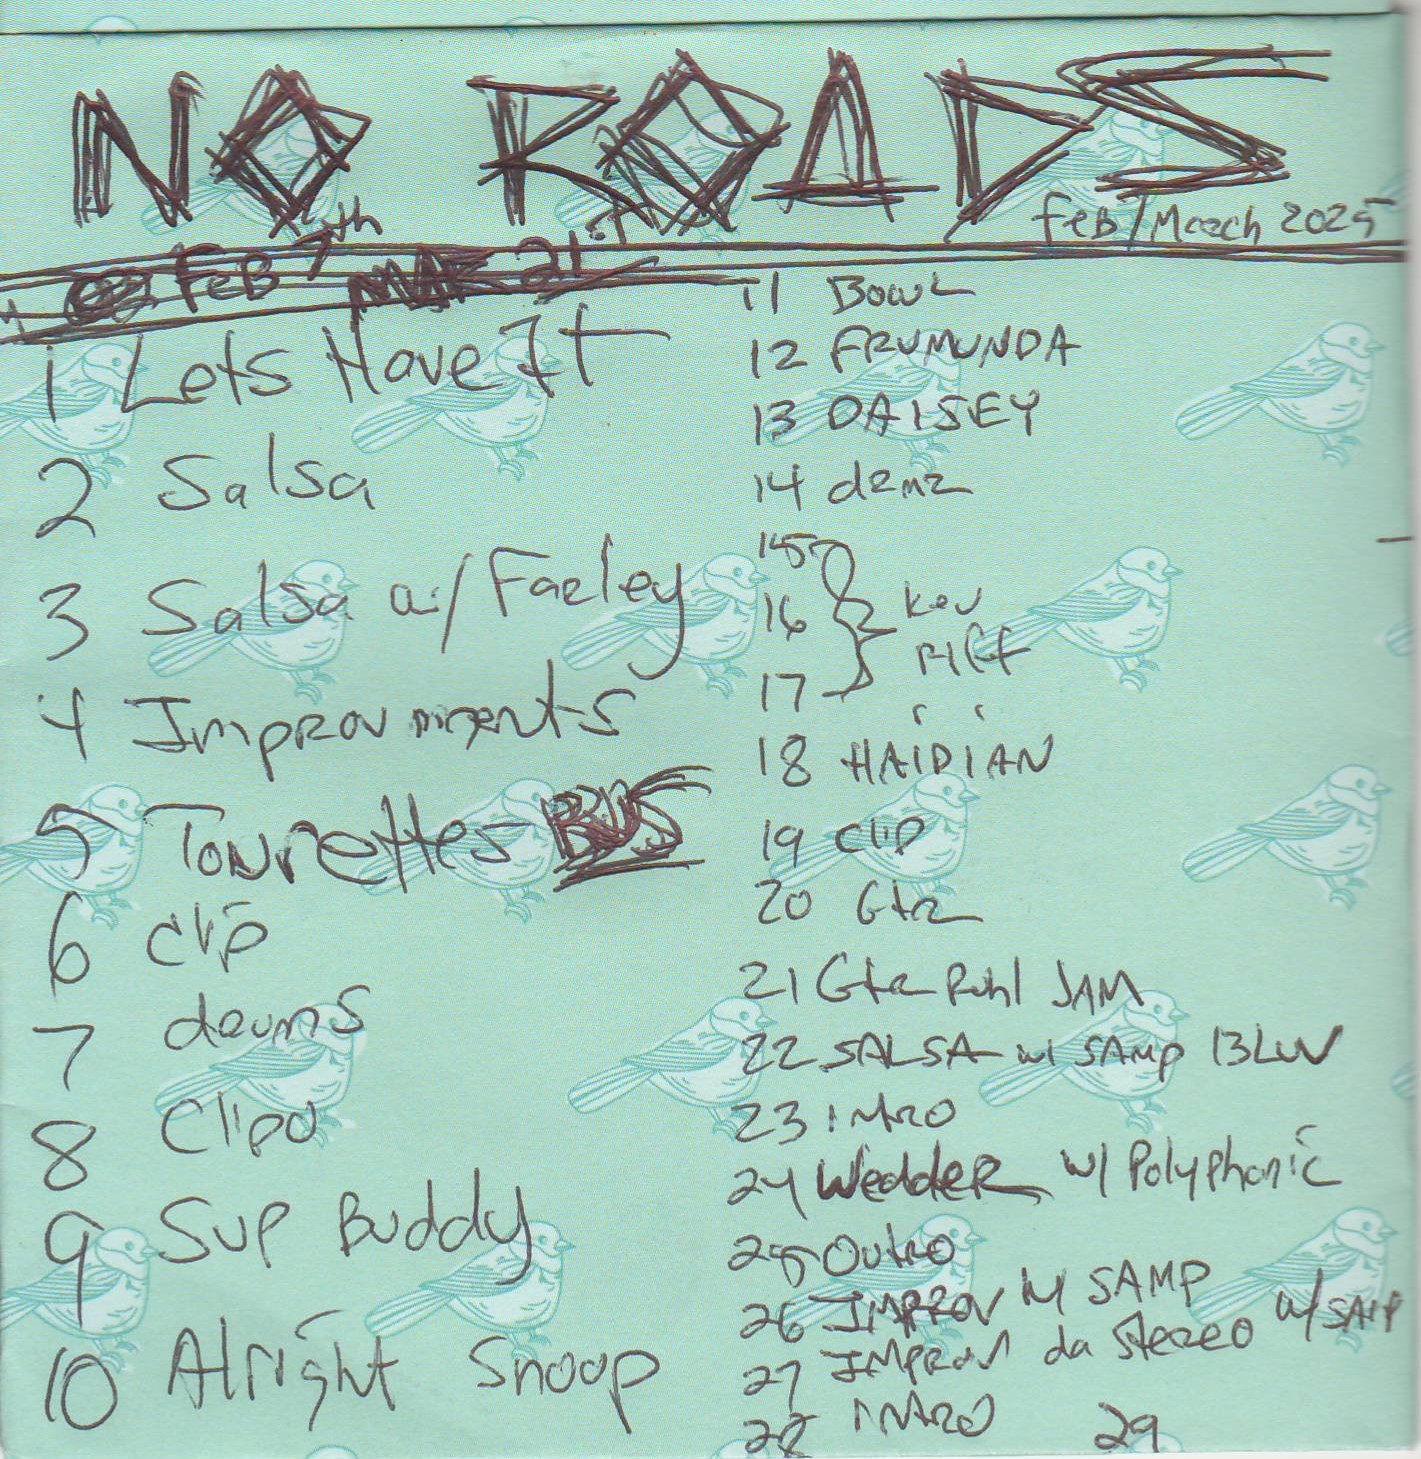 NO ROADS
Feb/March 2025
FEB 7th MAR 21st
1 Lets Have It
2 Salsa
3 Salsa w/ Farley
4 Improvments
5 Tourettes BUS
6 Clip
7 drums
8 Clipo
9 Sup Buddy
10 Alright Snoop
11 Bowl
12 FRUMUNDA
13 DAISEY
14 drmz
15
16 Kev
riff
17
18 HAIDIAN
19 Clip
20 Gtr
21 Gtr Ruhl JAM
22 SALSA w/ SAMP 13LUV
23 intro
24 Wedder w/ Polyphonic
25 Outro
26 IMPROV w/ SAMP
27 IMPROV da Stereo w/ SAMP
28 INtro 29